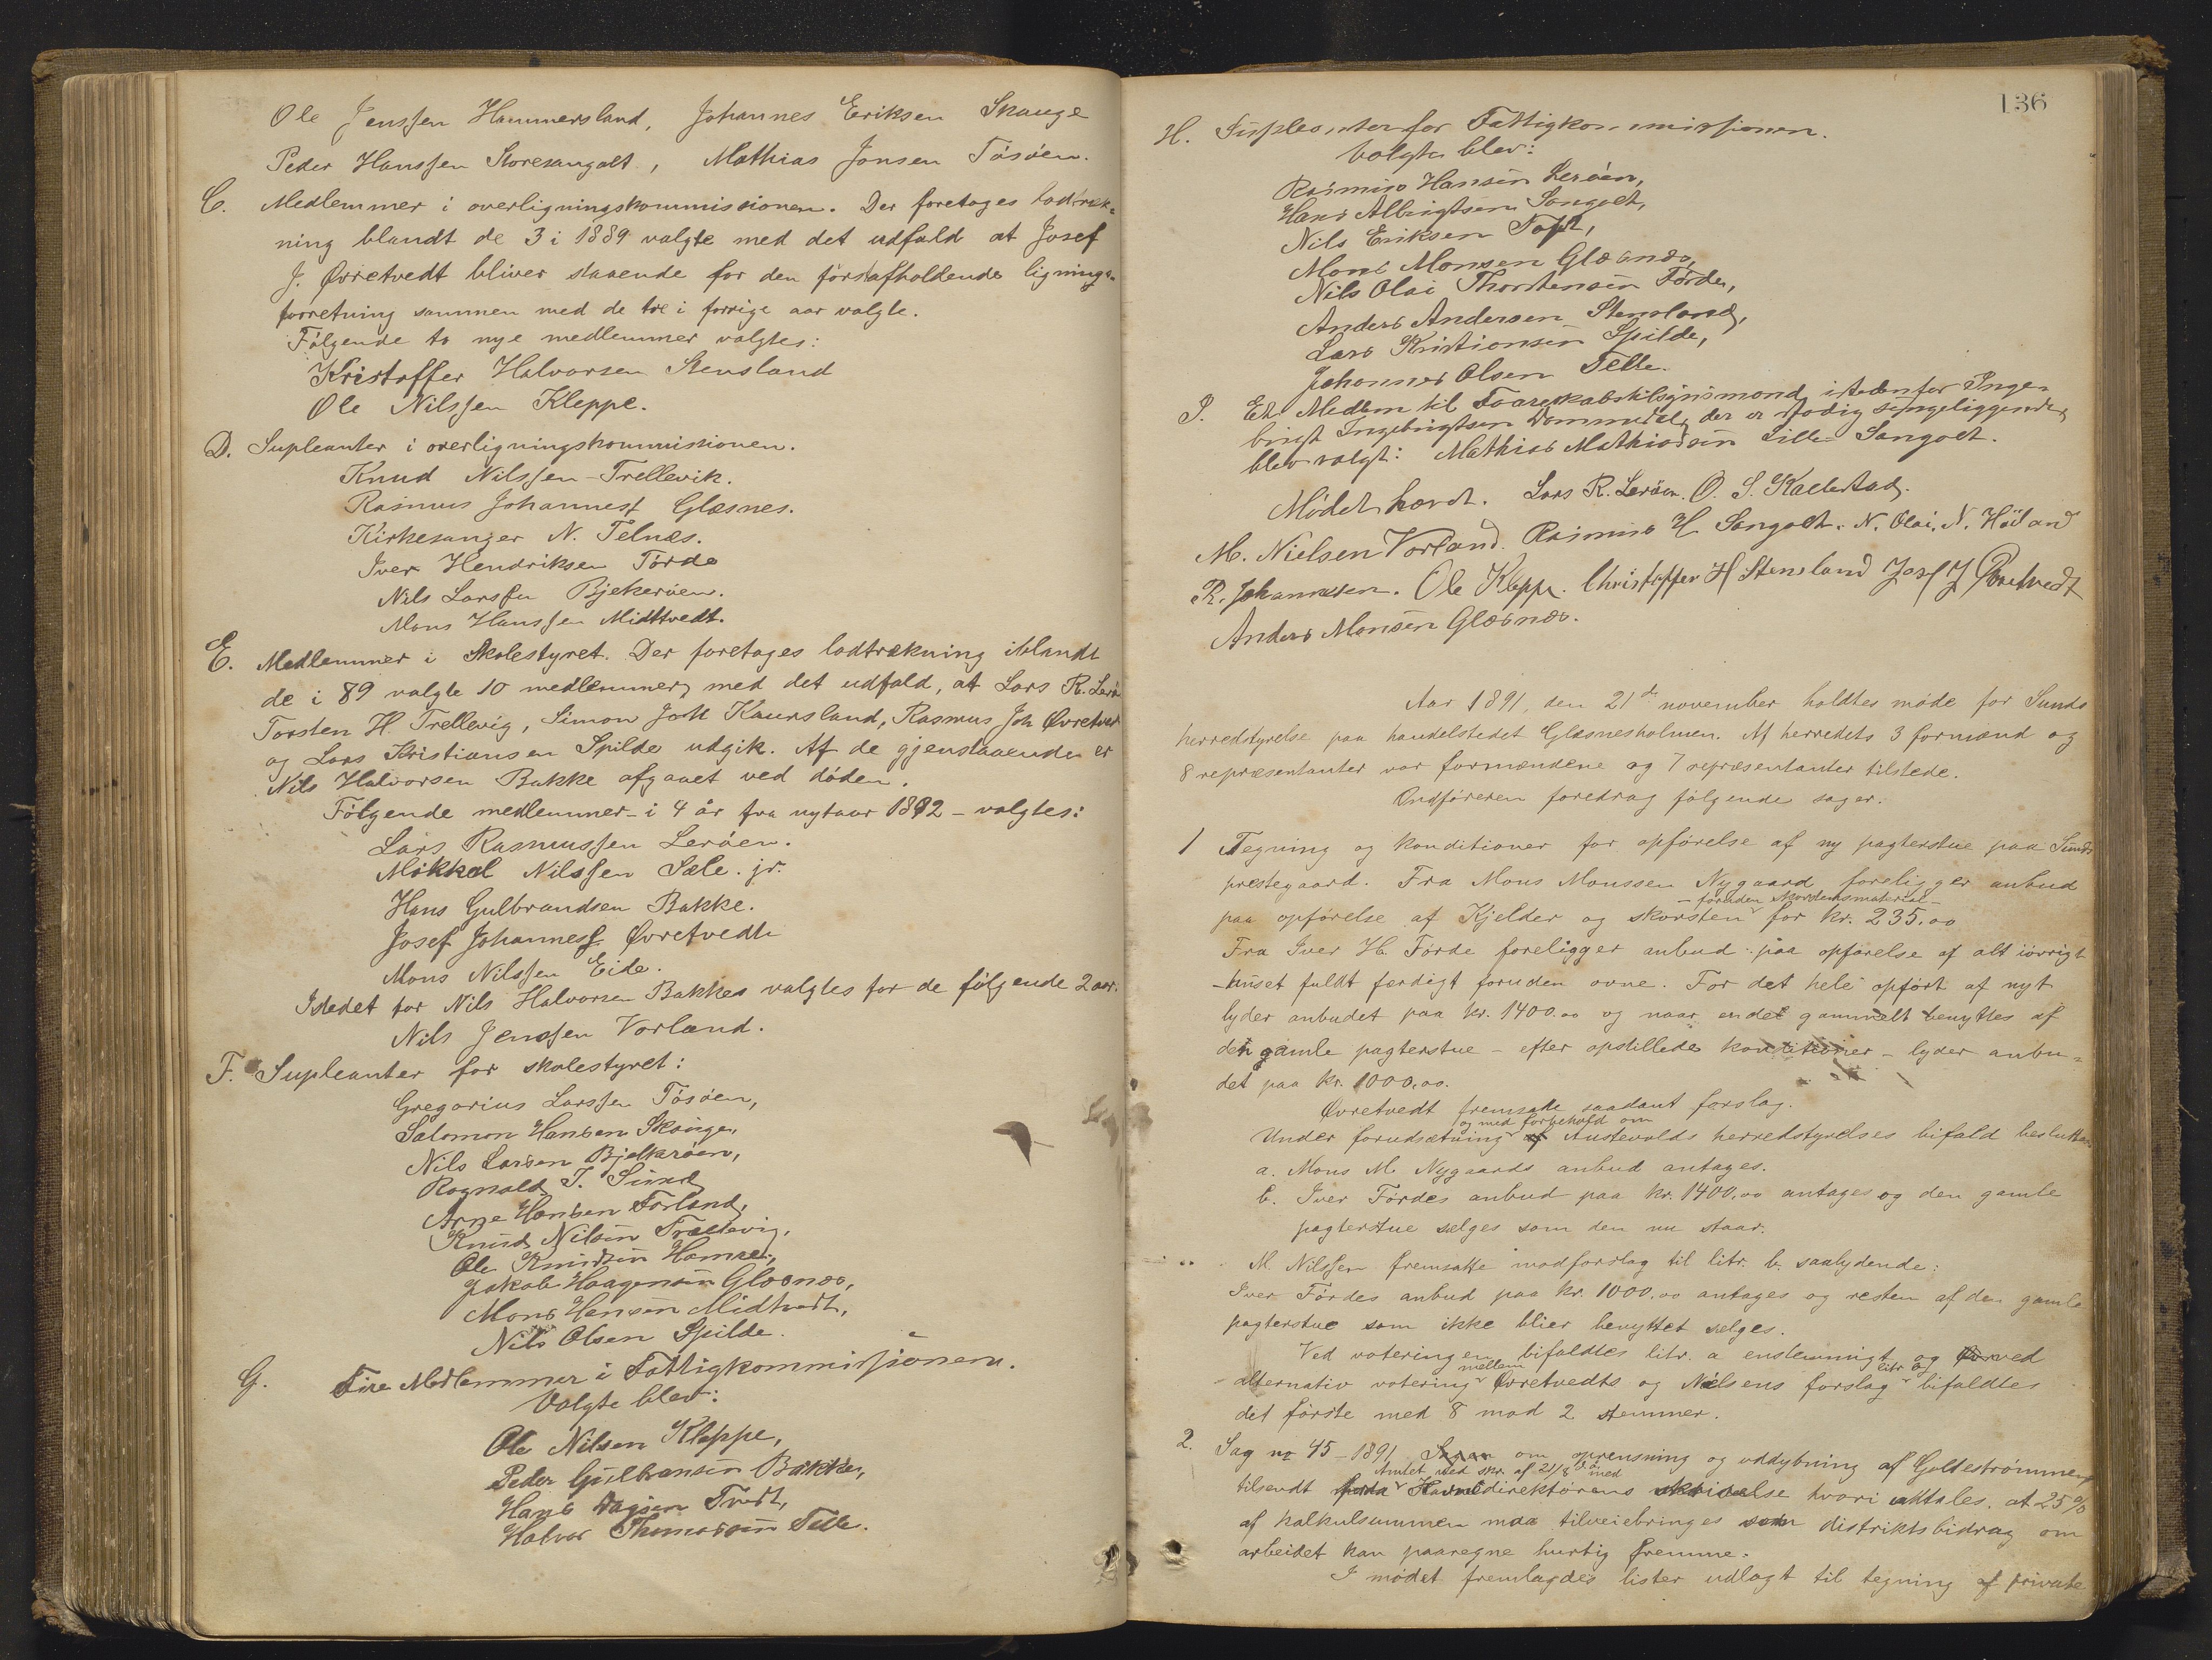 Ole Jenssen Hammersland, Johannes Eriksen Skauge
Peder Hanssen Storesangolt, Mathias Jonsen Tösöen.
C. Medlemmer i overligningskommissionen. Der foretages lodtræk-
ning blandt de 3 i 1889 valgte med det udfald at Josef
J. Øvretvedt bliver staaende for den förstafholdende lignings-
forretning sammen med de tre i forrige aar valgte.
Fölgende to nye medlemmer valgtes:
Kristoffer Halvorsen Stensland
Ole Nilssen Kleppe.
D. Supleanter i overligningskommissionen.
Knud Nilssen Trellevik.
Rasmus Johanness Glæsnes.
Kirkesanger N. Telnæs.
Iver Hendriksen Förde
Nils Larssen Bjekeröen.
Mons Hanssen Midttvedt.
E. Medlemmer i Skolestyret. Der foretages lodtrækning iblandt
de i 89 valgte 10 medlemmer, med det udfald, at Lars R. Lerö
Torsten H. Trellevig, Simon Joh Kausland, Rasmus Joh Øvretvedt
og Lars Kristiansen Spilde udgik. Af de gjenstaaende er
Nils Halvorsen Bakke afgaaet ved döden.
Fölgende medlemmer - i 4 år fra nytaar 1892 - valgtes:
Lars Rasmussen Leröen.
Mikkel Nilssen Sæle. jr.
Hans Gulbrandsen Bakke.
Josef Johanness Øvretvedt
Mons Nilssen Eide.
Istedet for Nils Halvorsen Bakkes valgtes for de fölgende 2 aar.
Nils Jenssen Vorland.
F. Supleanter for skolestyret:
Gregorius Larssen Tösöen,
Salomon Hansen Skauge,
Nils Larsen Bjelkeröen,
Ragnald T. Sund,
Arne Hansen Forland,
Knud Nilsen Trællevig,
Ole Knudsen Hamre,
Jakob Haagensen Glæsnæs,
Mons Hansen Midtvedt,
Nils Olsen Spilde.
G. Fire Medlemmer i Fattigkommissionen.
Valgte blev:
Ole Nilsen Kleppe,
Peder Gulbransen Bakke,
Hans Dagsen Tvedt,
Halvor Thomassen Telle.
136
H. Supleanter for Fattigkommissionen.
Valgte blev:
Rasmus Hansen Leröen,
Hans Albrigtsen Sangolt,
Nils Eriksen Toft,
Mons Monsen Glæsnæs,
Nils Olai Thorstensen Förde,
Anders Andersen Stensland,
Lars Kristiansen Spilde,
Johannes Olsen Telle.
I. Et Medlem til Forligskabstilsynsmand istedenfor Inge-
brigt Ingebrigtsen Dommedal, der er stadig sengeliggende,
blev valgt: Mathias Mathiassen Lille Sangolt.
Mödet hævet. Lars R. Leröen. O. S. Kallestad.
M. Nielsen Vorland. Rasmus H Sangolt. N. Olai. N. Höiland
R. Johannesen. Ole Kleppe. Christoffer H Stensland Josef J Øvretvedt
Anders Monsen Glæsnæs.
Aar 1891, den 21de november holdtes möde for Sunds
herredstyrelse paa handelstedet Glæsnesholmen. Af herredets 3 formænd og
8 repræsentanter var formændene og 7 repræsentanter tilstede.
Ordföreren foredrog fölgende sager:
1 Tegning og konditioner for opförelse af ny pagterstue paa Sunds
prestegaard. Fra Mons Monssen Nygaard foreligger anbud
- foruden skorstensmaterial -
paa opförelse af Kjelder og skorsten for kr. 235.00
Fra Iver H. Förde foreligger anbud paa opförelse af alt iövrigt
- huset fuldt færdigt foruden ovne. For det hele opfört af nyt
lyder anbudet paa kr. 1400.00 og naar endel gammelt benyttes af
den gamle pagterstue - efter opstillede konditioner - lyder anbu-
det paa kr. 1000.00.
Øvretvedt fremsatte saadant forslag.
og med forbehold om
Under forudsætning af Austevolds herredstyrelses bifald besluttes
a. Mons M. Nygaards anbud antages.
b. Iver Fördes anbud paa kr. 1400.00 antages og den gamle
pagterstue sælges som den nu staar.
M. Nilssen fremsatte modforslag til litr. b. saalydende:
Iver Fördes anbud paa kr. 1000.00 antages og resten af den gamle
pagterstue som ikke blier benyttet sælges.
Ved voteringen bifaldtes litr. a enstemmigt og ved
mellem litr b
alternativ votering Øvretvedts og Nielsens forslag bifaldtes
det förste med 8 mod 2 stemmer.
2. Sag no 45 - 1891 om oprensning og uddybning af Goltestrømmen
Amtet ved skr. af 21/8 med
tilsendt Havnedirektörens skrivelse hvori uttales. at 25%
af kalkulsummen maa tilveiebringes som distriktsbidrag om
arbeidet kan paaregne hurtig fremme.
I mödet fremlagdes lister udlagt til tegning af private